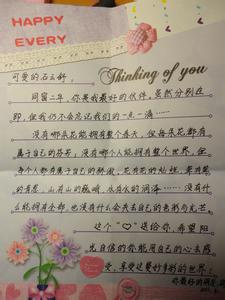 HAPPY
EVERY
可爱的石云舒:
Thinking of you
同窗二年,你是我最好的伙伴,虽然分别在
即,但我仍不会忘记我们的一点一滴……
没有哪朵花能拥有整个春天,但每朵花都有
属于自己的芬芳,没有哪个人能拥有整个世界,但
每个人都有属于自己的骄傲,花有花的灿烂,草有草
的青葱,山有山的巍峨,水有水的润泽……没有什
么能拥有全部,也没有什么会失去自己的色彩与光芒
这个“♡”送给你,希望阳
光自信的你能用自己的心去感
受、享受这美好多彩的世界!
你最好的朋友